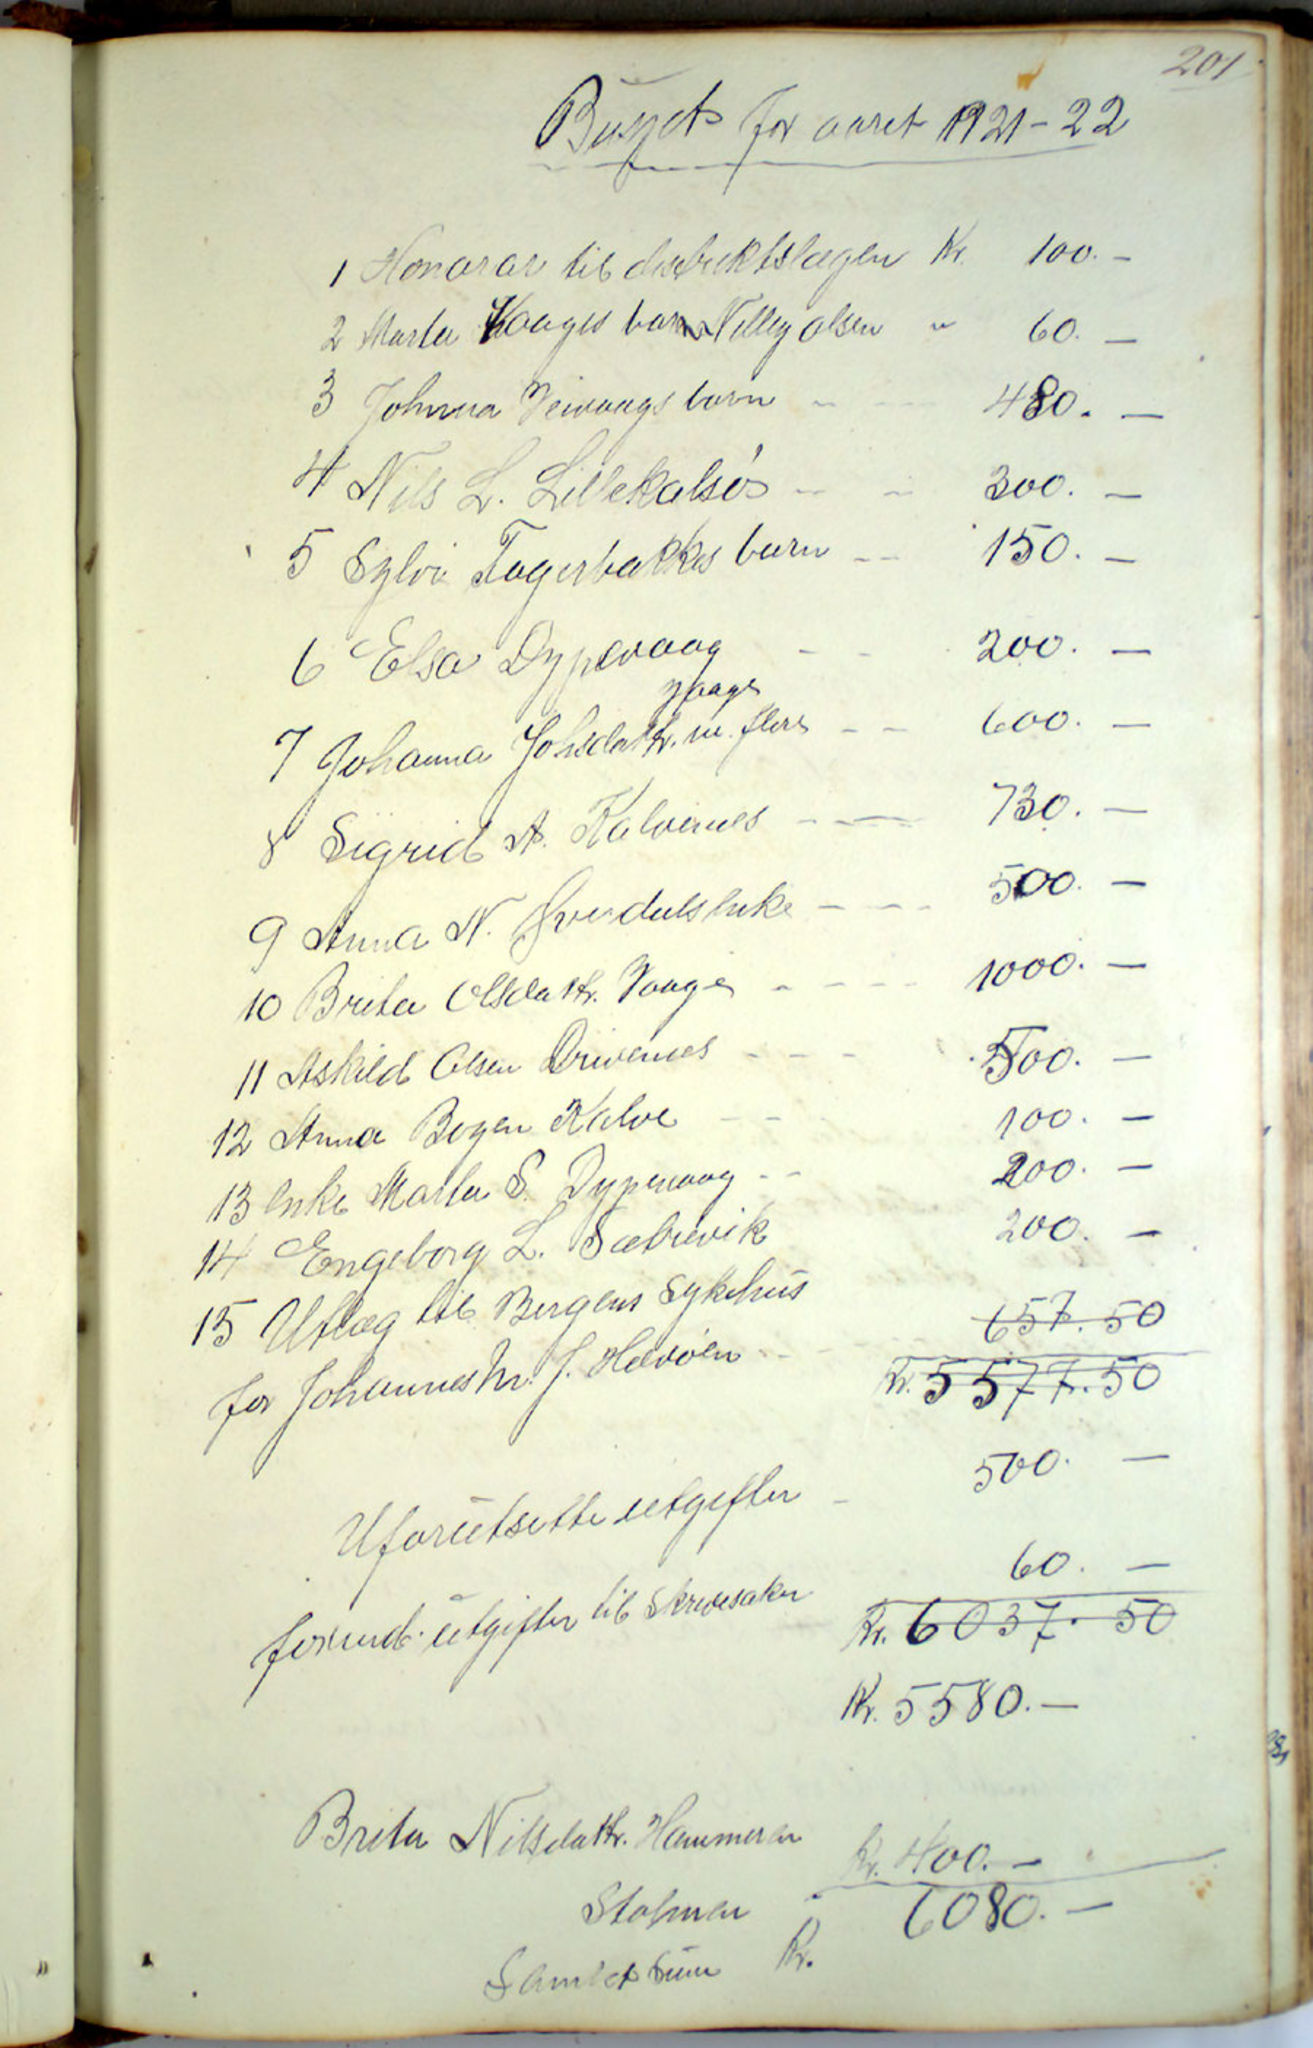 201
Budget for aaret 1921-22
1 Honorar til distriktslægen Kr. 100.-
2 Marta Vaages barn Nelly Olsen " 60.-
3 Johanna Veivaags barn 480.-
4 Nils L. Lillekalsøs 300.-
5 Sylvi Fagerbakkes barn 150.-
6 Elsa Dypevaag 200.-
Vaage
7 Johanna Johsdattr. m. flere 600.-
8 Sigrid A. Kalvenes 730.-
9 Anna N. 500.-
10 Brita Olsdattr. Vaage 1000.-
11 Askild Olsen Drivenes 500.-
12 Anna Bogen Kalve 100.-
13 Enke Marta S. Dypevaag 200.-
14 Engeborg L. Sæbrevik 200.-
15 Utlæg til Bergens Sykehus
for Johannes M. J. Hevrøen 657.50
Kr. 5577.50
Uforutsette utgifter 500.-
forund. utgifter til skrivesaker 60.-
Kr. 6037.50
Kr. 5580.-
Brita Nilsdattr. Hammeren
Stolmen Kr. 400.-
Samlet sum Kr. 6080.-